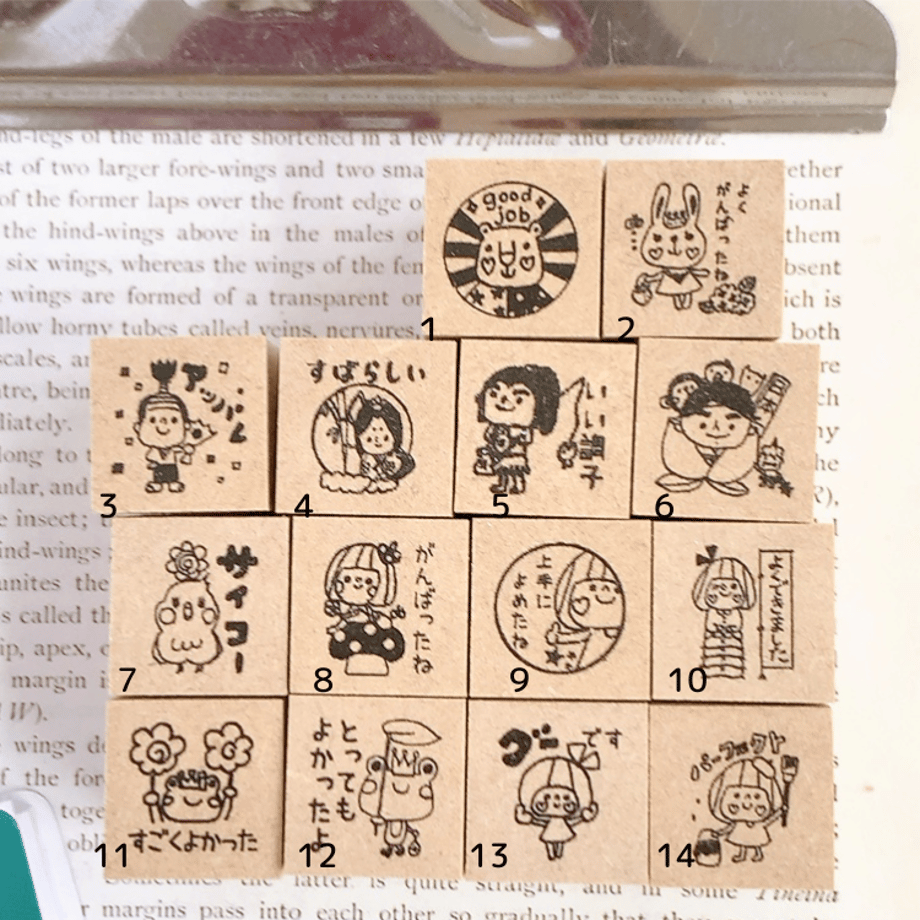 hind-legs of the male are shortened in a few Hepialidae and Geometrae.
st of two larger fore-wings and two sma
ether
of the former laps over the front edge o
ional
the hind-wings above in the males of
them
six wings, whereas the wings of the fem
bsent
wings are formed of a transparent or
ich is
llow horny tubes called veins, nervures,
both
scales, ar
re
tre, bein
ch
liately.
ny
long to t
he
ular, and
e insect; t
ind-wings
unites the
s called th
ip, apex, c
margin i
W).
wings de
f the for
toge
obl
Sometimes the latter is quite straight, and in some Tineina
r margins pass into each other so gradually that there
good
job
1
よく
がんばったね
2
アッパレ
3
すばらしい
4
いい調子
5
6
サイコー
7
がんばったね
8
上手に
よめたね
9
よくできました
10
すごくよかった
11
とっても
よかったよ
12
グーです
13
パーフェクト
14